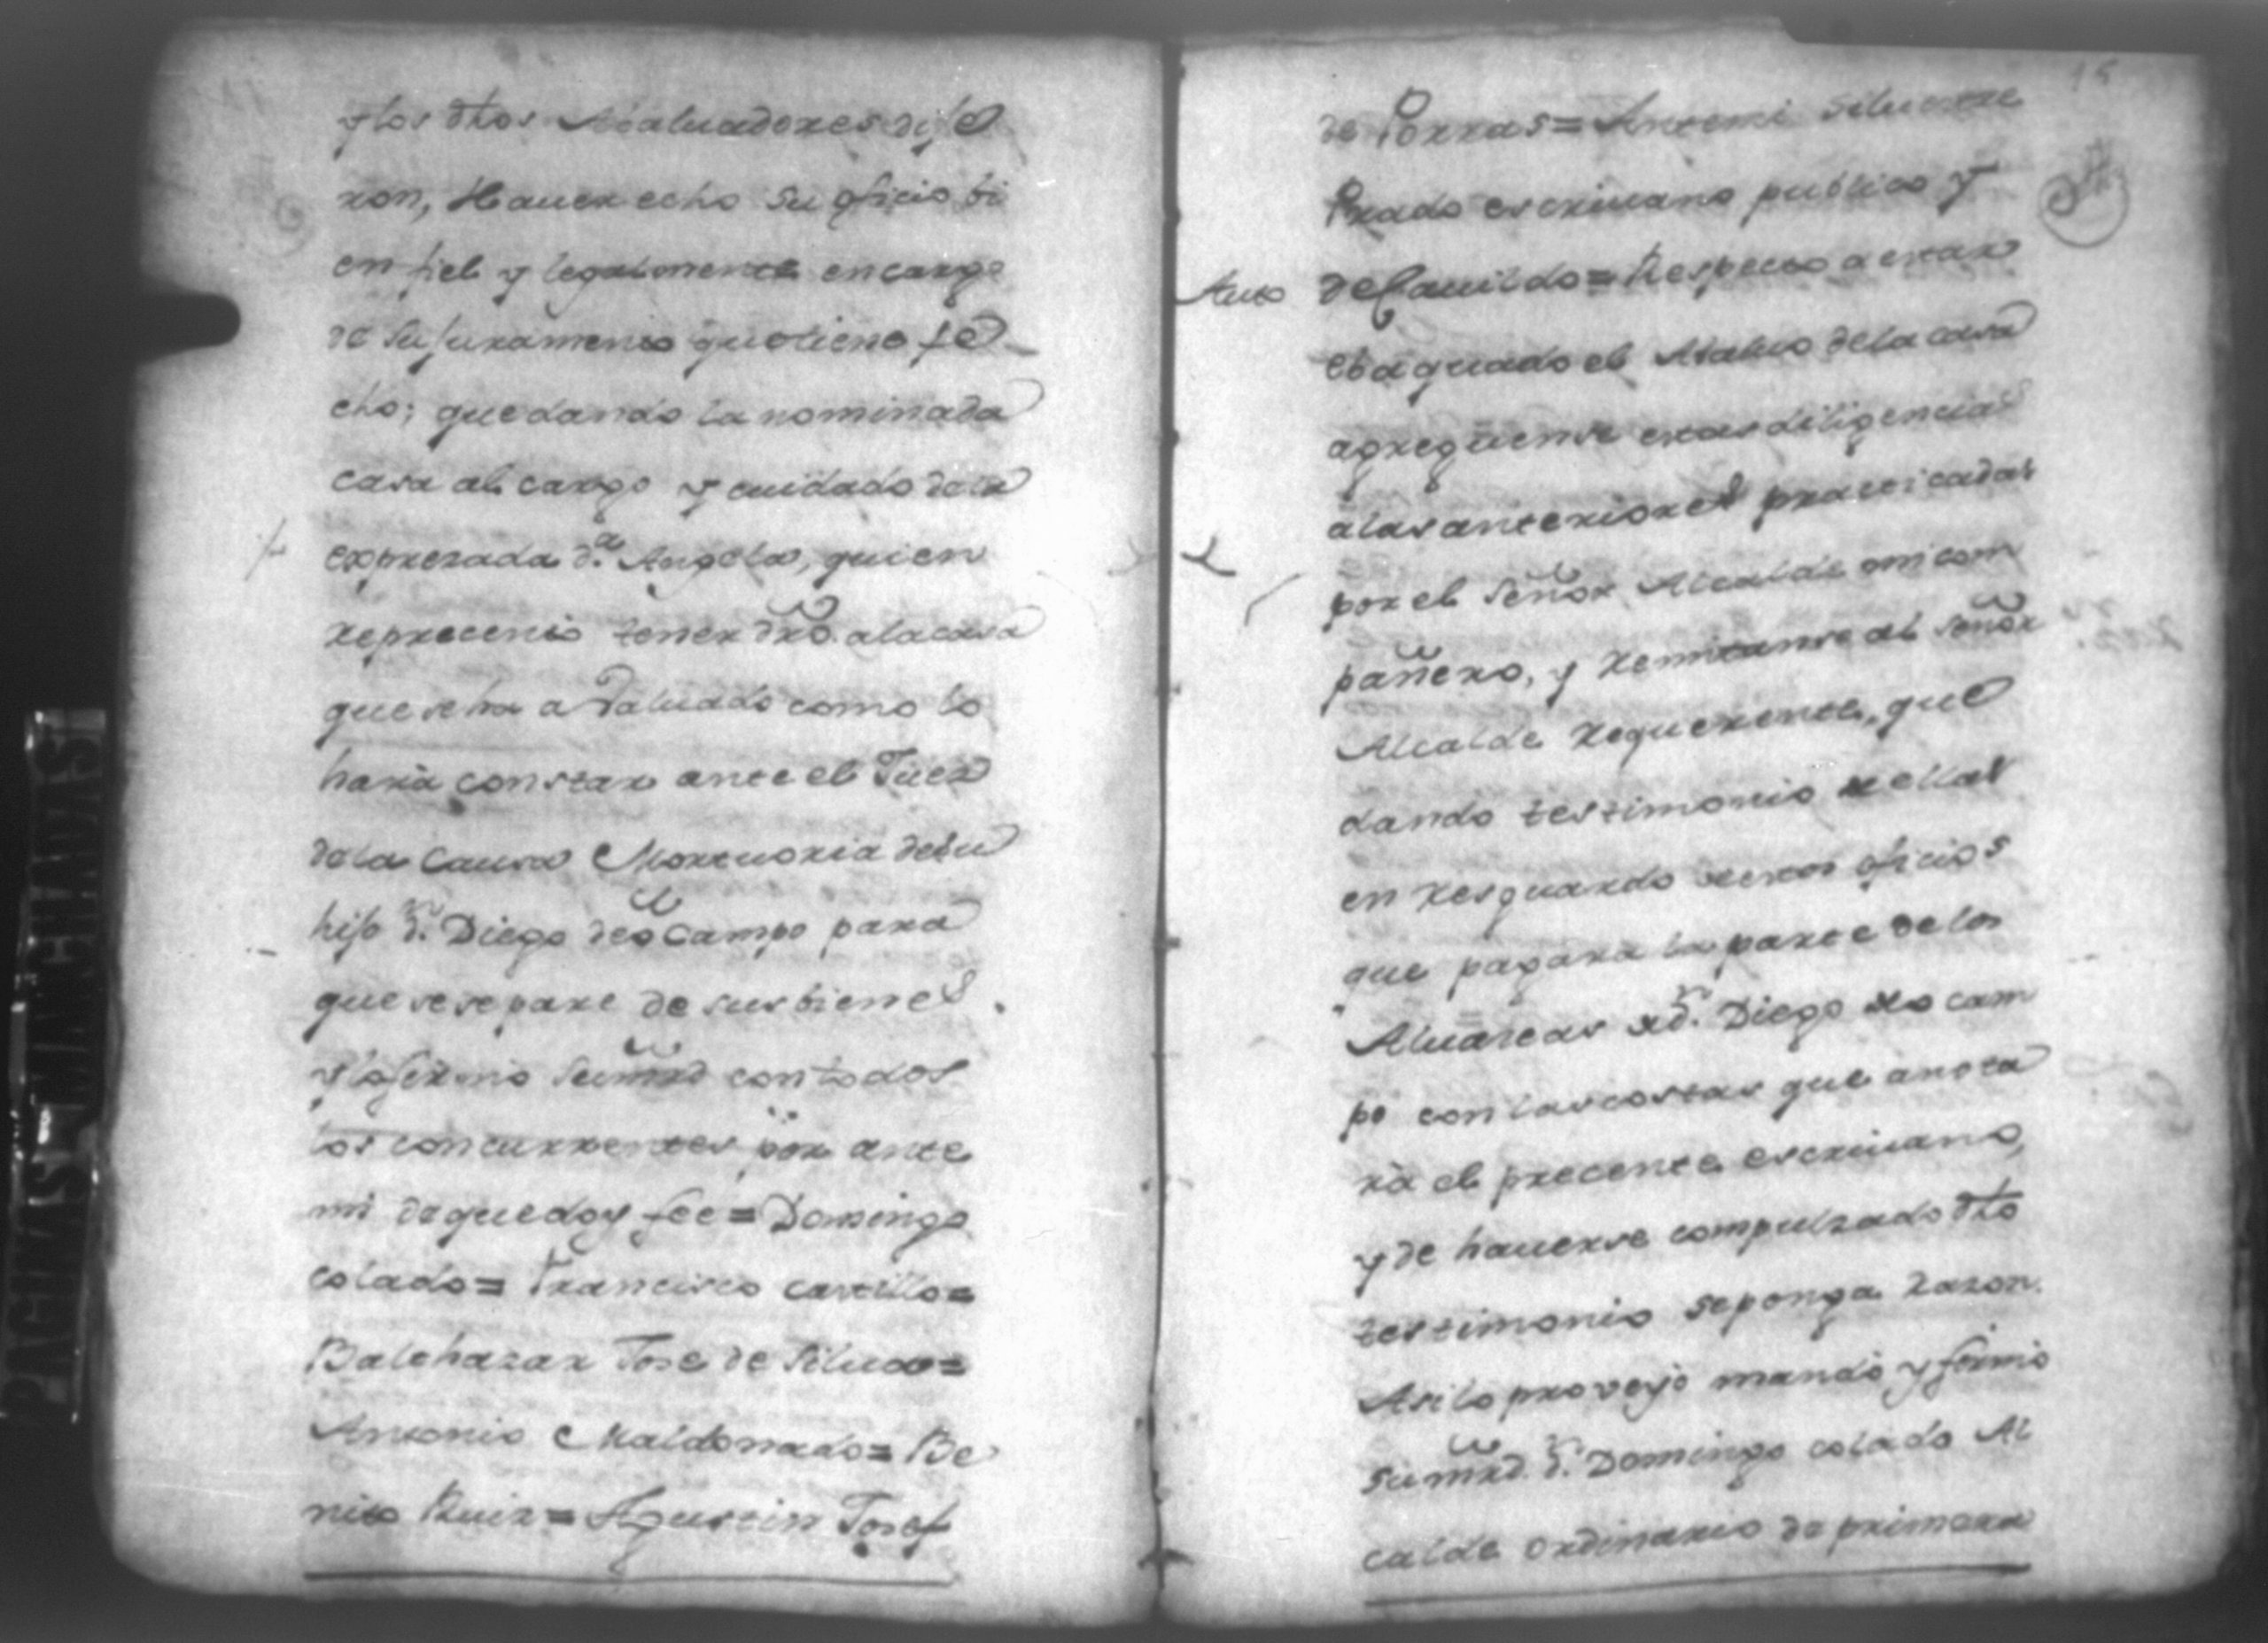 y los dhos Abaluadores dije
ron, Hauer echo su oficio bi
en fiel y legalmente en cargo
de su juramento que tiene fe
cho; quedando la nominada
casa al cargo y cuidado de la
exprezada d.ª Angela, quien
reprecento tener dro. a la casa
que se ha avaluado como lo
hará constar ante el Juez
de la Causa Mortuoria de su
hijo d.n Diego de ocampo para
que se separe de sus bienes.
y lo firmo su mrd con todos
los concurrentes por ante
mi de que doy fee = Domingo
colado = Francisco castillo =
Balthazar Jose de Silua =
Antonio Maldonado = Be
nito Ruiz = Agustin Josef
15
de Porras = Antemi Siluestre
Prado escriuano publico y
Auto de Cauildo = Respecto a estar
ebaquado el Abaluo de la casa
agreguense estas diligencias
a las anteriores practicadas
por el Señor Alcalde mi com
pañero, y remitanse al señor
Alcalde requerente, que
dando testimonio de ellas
en resguardo de estos oficios
que pagara la parte de los
Aluaceas de d.n Diego de o cam
po con las costas que anota
rá el precente escriuano,
y de hauerse compulzado dho
testimonio se ponga razon.
Asi lo proveyó mandó y firmó
su mrd. d.n Domingo colado Al
calde ordinario de primera
PAGINAS MANCHADAS